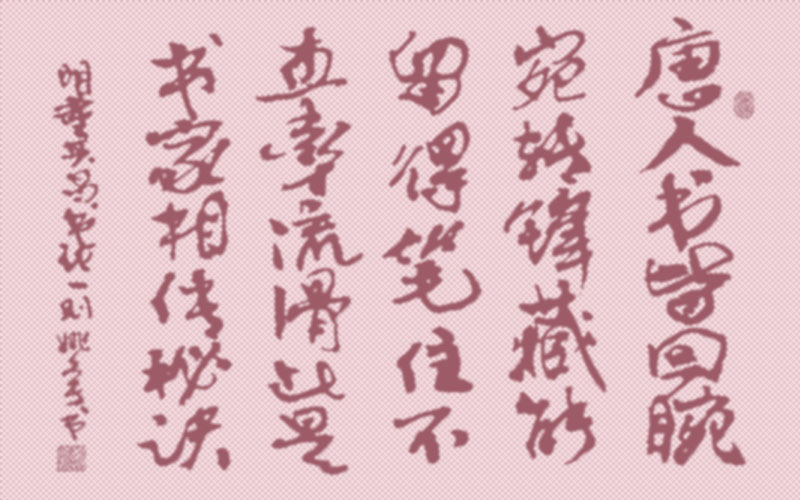 唐人书皆回腕
宛转锋藏能
留得笔住不
直率流滑此是
书家相传秘诀
明董其昌书 一则 姚 书